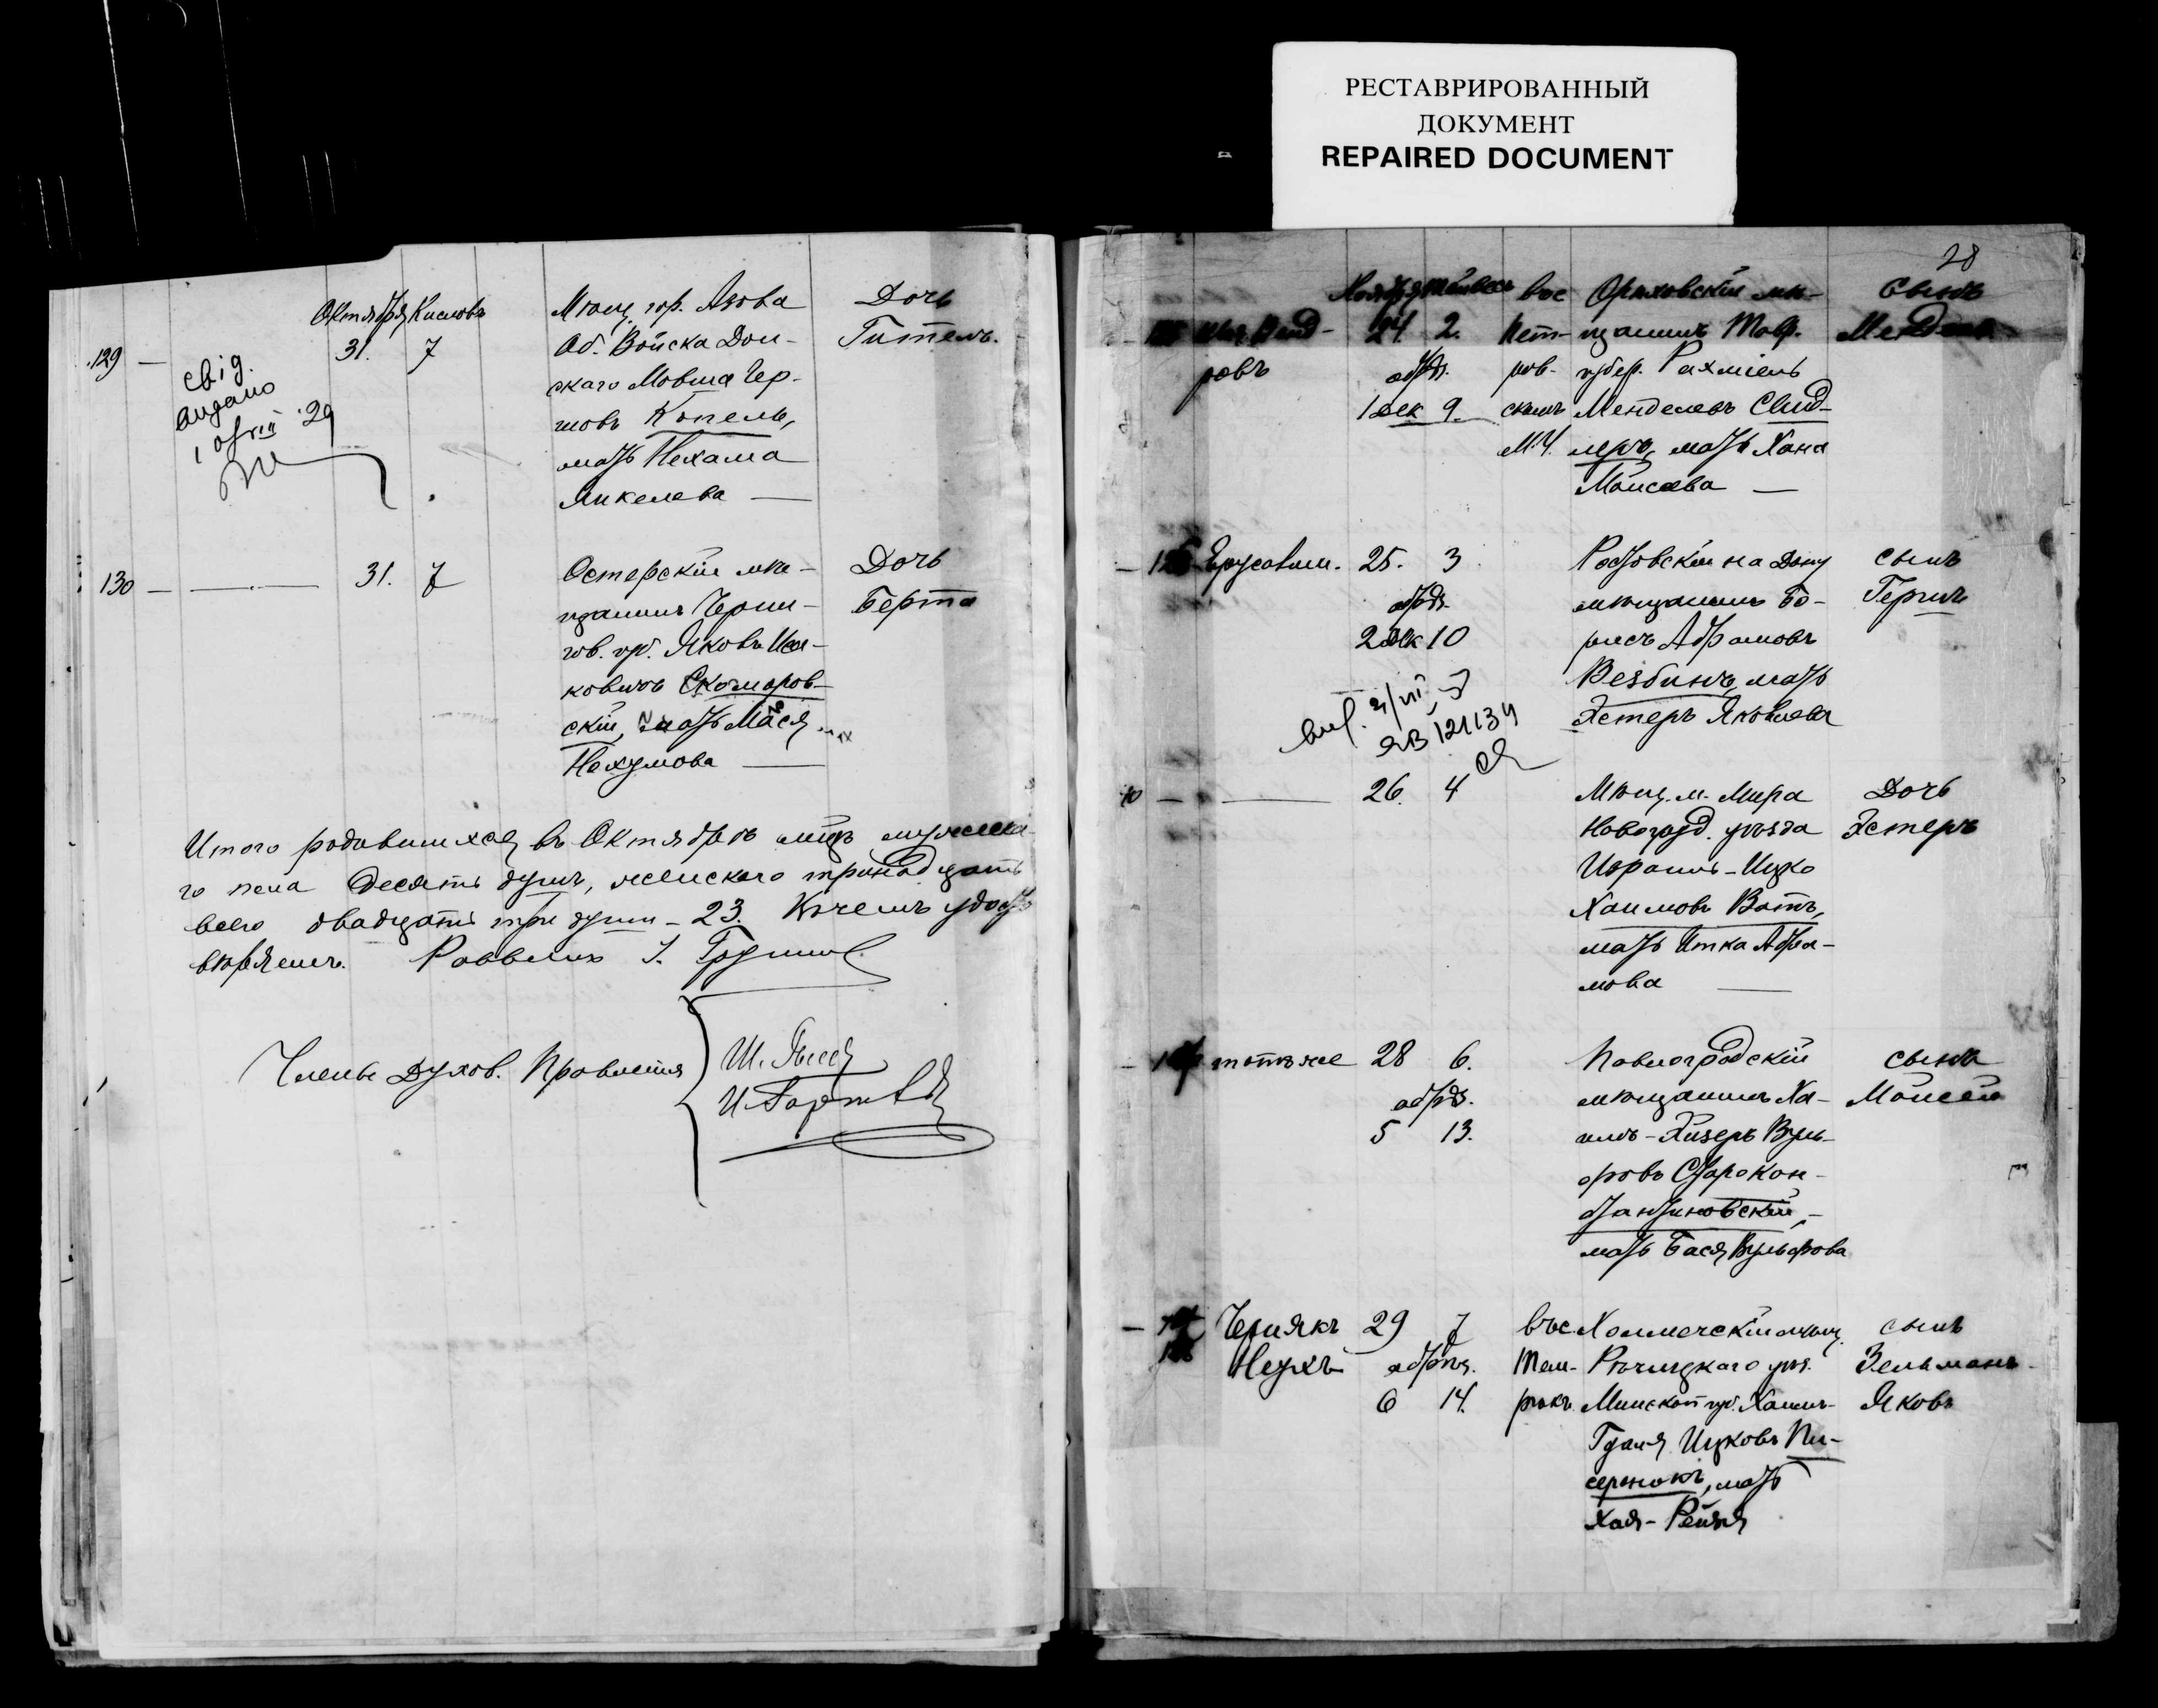 РЕСТАВРИРОВАННЫЙ
ДОКУМЕНТ
REPAIRED DOCUMENT
Октября Кислевъ
129 — 31. 7
свід.
видано
29
Мѣщ. гор. Азова
Об. Войска Дон-
скаго Мовша Бер-
ковъ Копель,
мать Нехама
Янкелева —
Дочь
Гитель.
130 — — 31. 7
Остерскій мѣ-
щанинъ Черни-
гов. губ. Яковъ Иса-
ковичъ Скомаров-
скій, мать Мася
Нахумова —
Дочь
Берта
Итого родившихся въ Октябрѣ мцѣ мужска-
го пола десять душъ, женскаго тринадцать
всего двадцать три души – 23. Въ чемъ удосто-
вѣряемъ. Раввинъ
Члены Духов. Правленія
28
Ноября Тейвесъ
24 2.
обрѣз.
1 дек 9.
вос
Пет-
ров-
скимъ
М.Ч.
ровъ
Орѣховскій мѣ-
щанинъ Тавр.
губер. Рахміель
Менделевъ Свид-
леръ, мать Хана
Моисеева —
сынъ
Мендель
Ерусалим. 25. 3
обрѣз.
2 дек 10
Ростовскій на Дону
мѣщанинъ Бо-
рисъ Абрамовъ
Резбинъ, мать
Эстеръ Яковлева
сынъ
Гершъ
ЯВ 121134
— — 26. 4
Мѣщ. м. Мира
Новогруд. уѣзда
Израиль-Ицко
Хаимовъ Ватъ,
мать Итка Абра-
мова —
Дочь
Эстеръ
тотъ же 28 6.
обрѣз.
5 13.
Павлоградскій
мѣщанинъ Ха-
имъ-Лизеръ Вуль-
фовъ Старокон-
стантиновскій, –
мать Бася Вульфова
сынъ
Моисей
Чернякъ 29 7
Нухъ обрѣз.
6 14.
вос.
Тем-
рюкъ.
Холмечскій мѣщ.
Рѣчицкаго уѣз.
Минской губ. Хаимъ-
Гдаля Ицковъ Пи-
сарнокъ, мать
Хая-Рейзя
сынъ
Зельманъ-
Яковъ